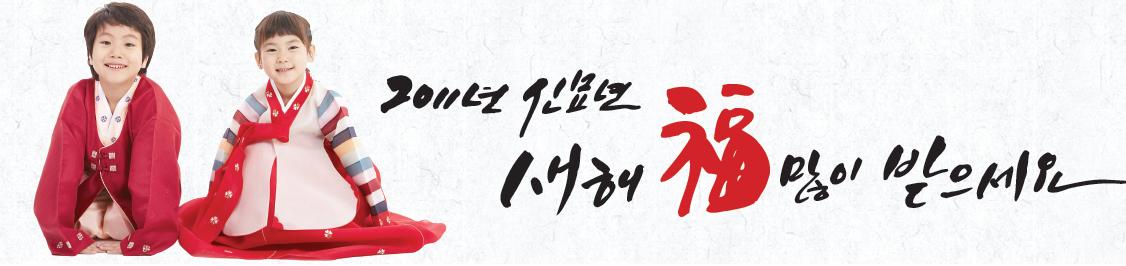 2011년 신묘년
새해 福 많이 받으세요